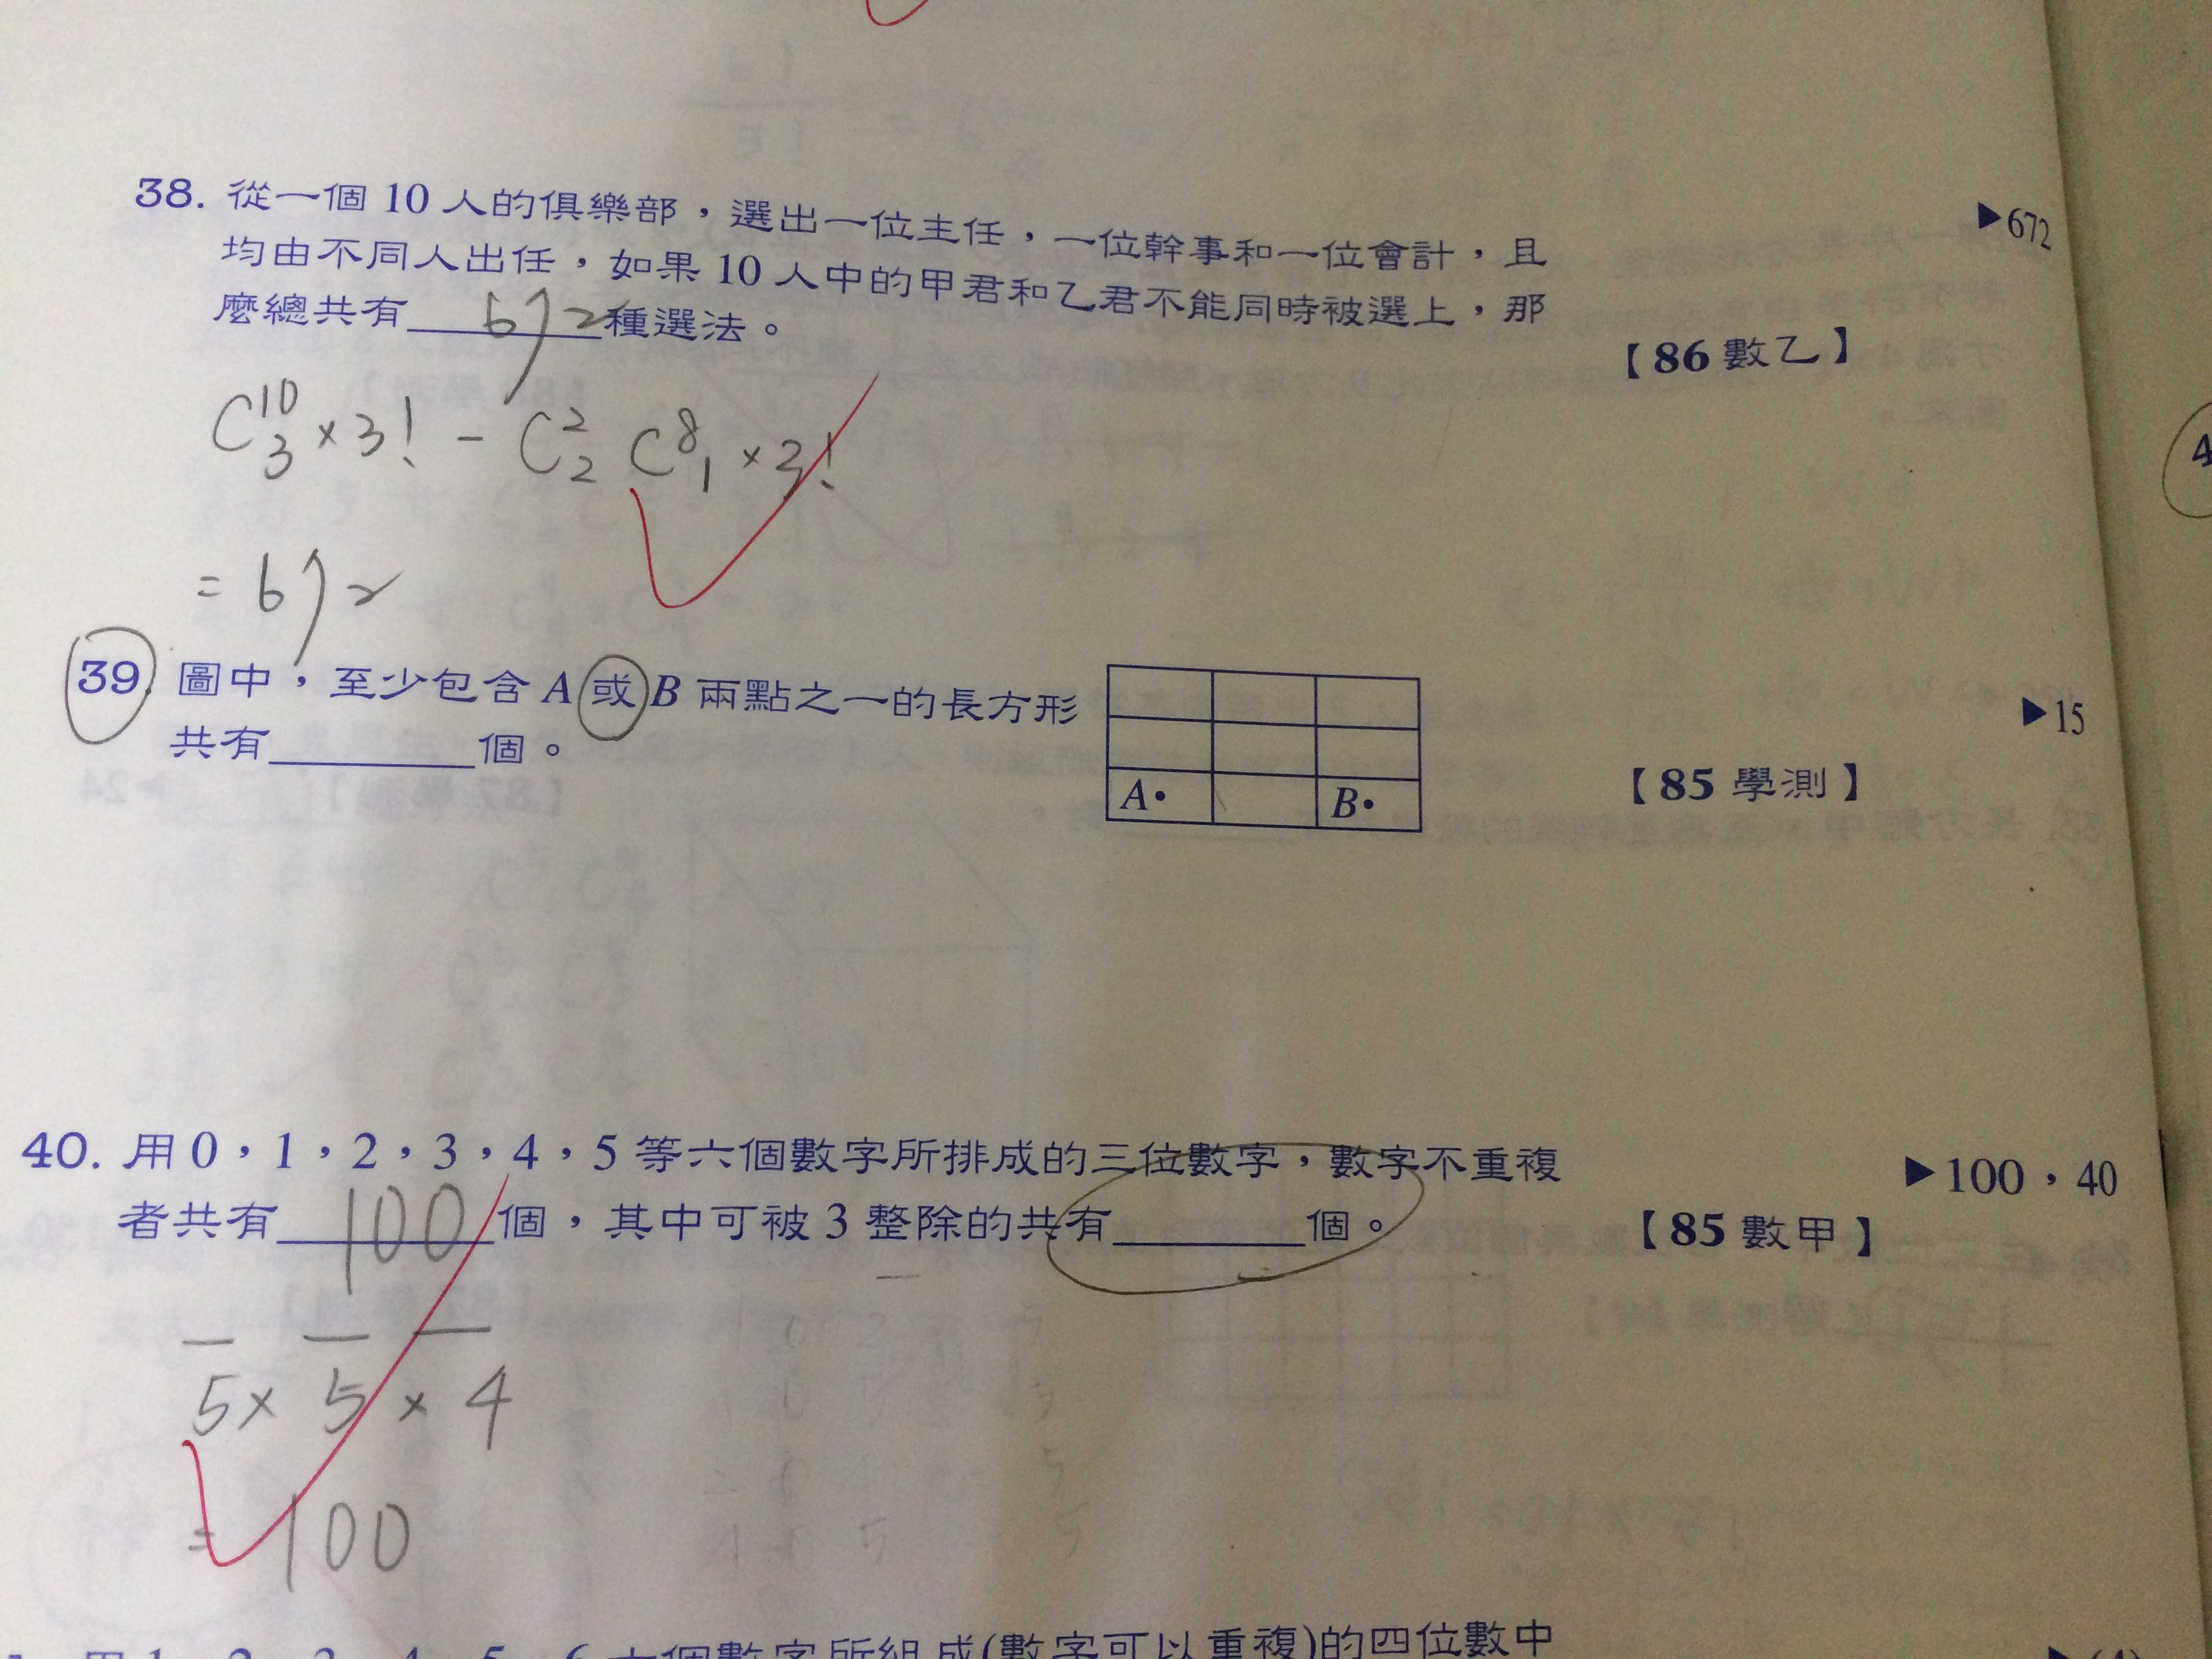 38. 從一個 10 人的俱樂部，選出一位主任，一位幹事和一位會計，且
▶672
均由不同人出任，如果 10 人中的甲君和乙君不能同時被選上，那
麼總共有 672 種選法。
【86 數乙】
C¹⁰₃ × 3! − C²₂ C⁸₁ × 3!
= 672
39. 圖中，至少包含 A 或 B 兩點之一的長方形
▶15
共有______個。
【85 學測】
A• B•
40. 用 0，1，2，3，4，5 等六個數字所排成的三位數字，數字不重複
▶100，40
者共有 100 個，其中可被 3 整除的共有______個。
【85 數甲】
5 × 5 × 4
= 100
用 1，2，3，4，5，6 六個數字所組成(數字可以重複)的四位數中
▶(4)